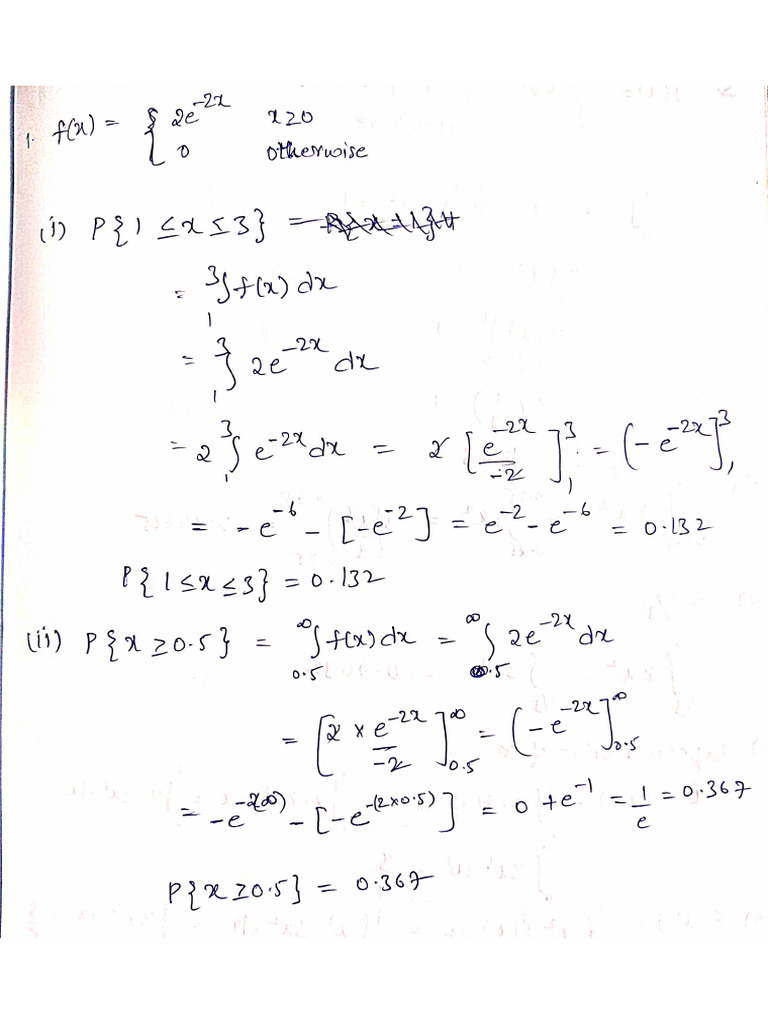 1. f(x) = { 2e^{-2x} x≥0
0 otherwise
(i) P{1 ≤ x ≤ 3} =
= ∫_1^3 f(x) dx
= ∫_1^3 2e^{-2x} dx
= 2 ∫_1^3 e^{-2x} dx = 2 [e^{-2x}/-2]_1^3 = (-e^{-2x}]_1^3
= -e^{-6} - [-e^{-2}] = e^{-2} - e^{-6} = 0.132
P{1 ≤ x ≤ 3} = 0.132
(ii) P{x ≥ 0.5} = ∫_{0.5}^∞ f(x) dx = ∫_{0.5}^∞ 2e^{-2x} dx
= [2 × e^{-2x}/-2]_{0.5}^∞ = (-e^{-2x}]_{0.5}^∞
= -e^{-2(∞)} - [-e^{-(2×0.5)}] = 0 + e^{-1} = 1/e = 0.367
P{x ≥ 0.5} = 0.367